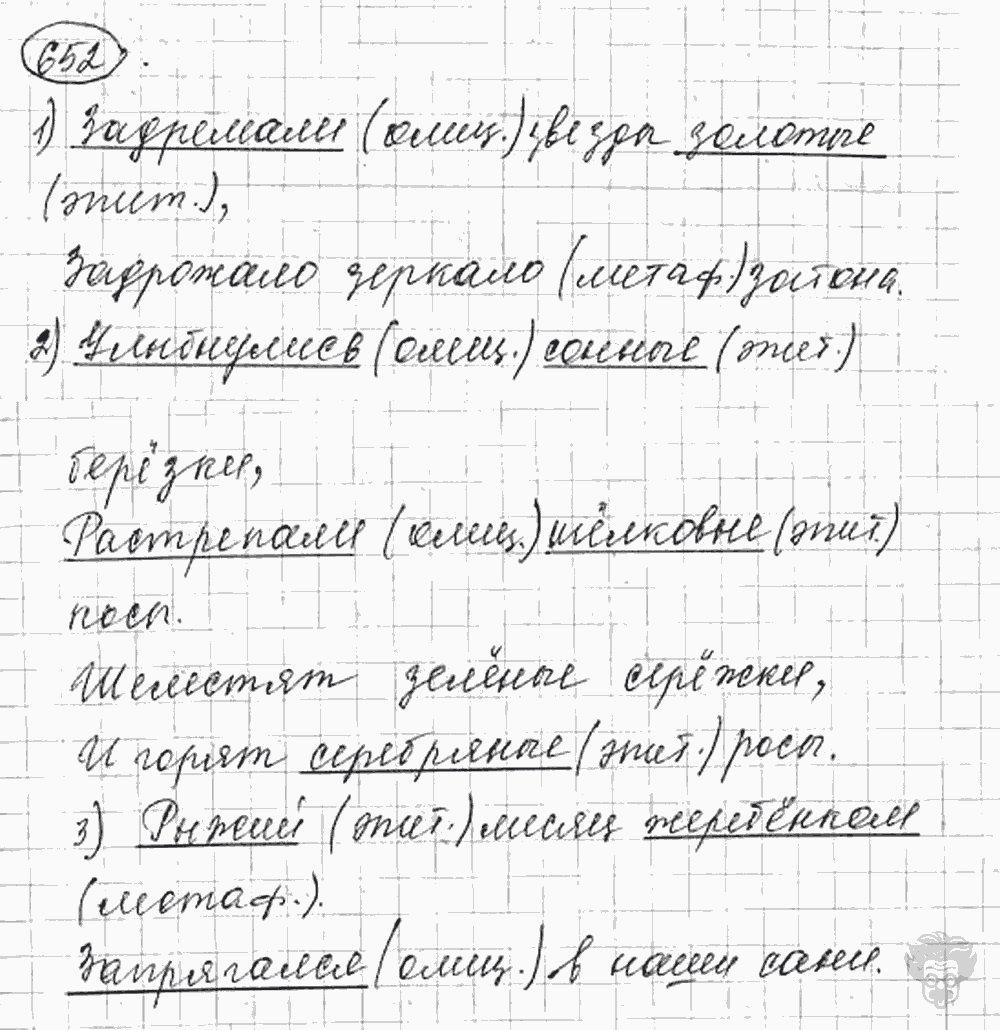 652.
1) Задремали (олиц.) звезды золотые
(эпит.),
Задрожало зеркало (метаф.) затона.
2) Улыбнулись (олиц.) сонные (эпит.)
берёзки,
Растрепали (олиц.) шёлковые (эпит.)
косы.
Шелестят зелёные серёжки,
И горят серебряные (эпит.) росы.
3) Рыжий (эпит.) месяц жеребёнком
(метаф.).
Запрягался (олиц.) в наши сани.